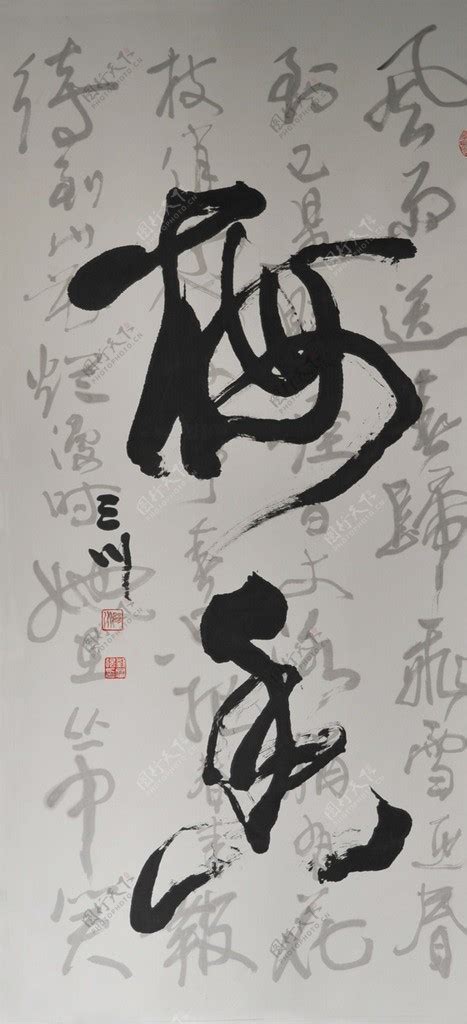 風雨送春歸飛雪迎春
到已是悬崖百丈冰犹有花
枝俏不争春只把春来報
待到山花烂漫时她在丛中笑
梅
三川
图行天下
PHOTOPHOTO.CN